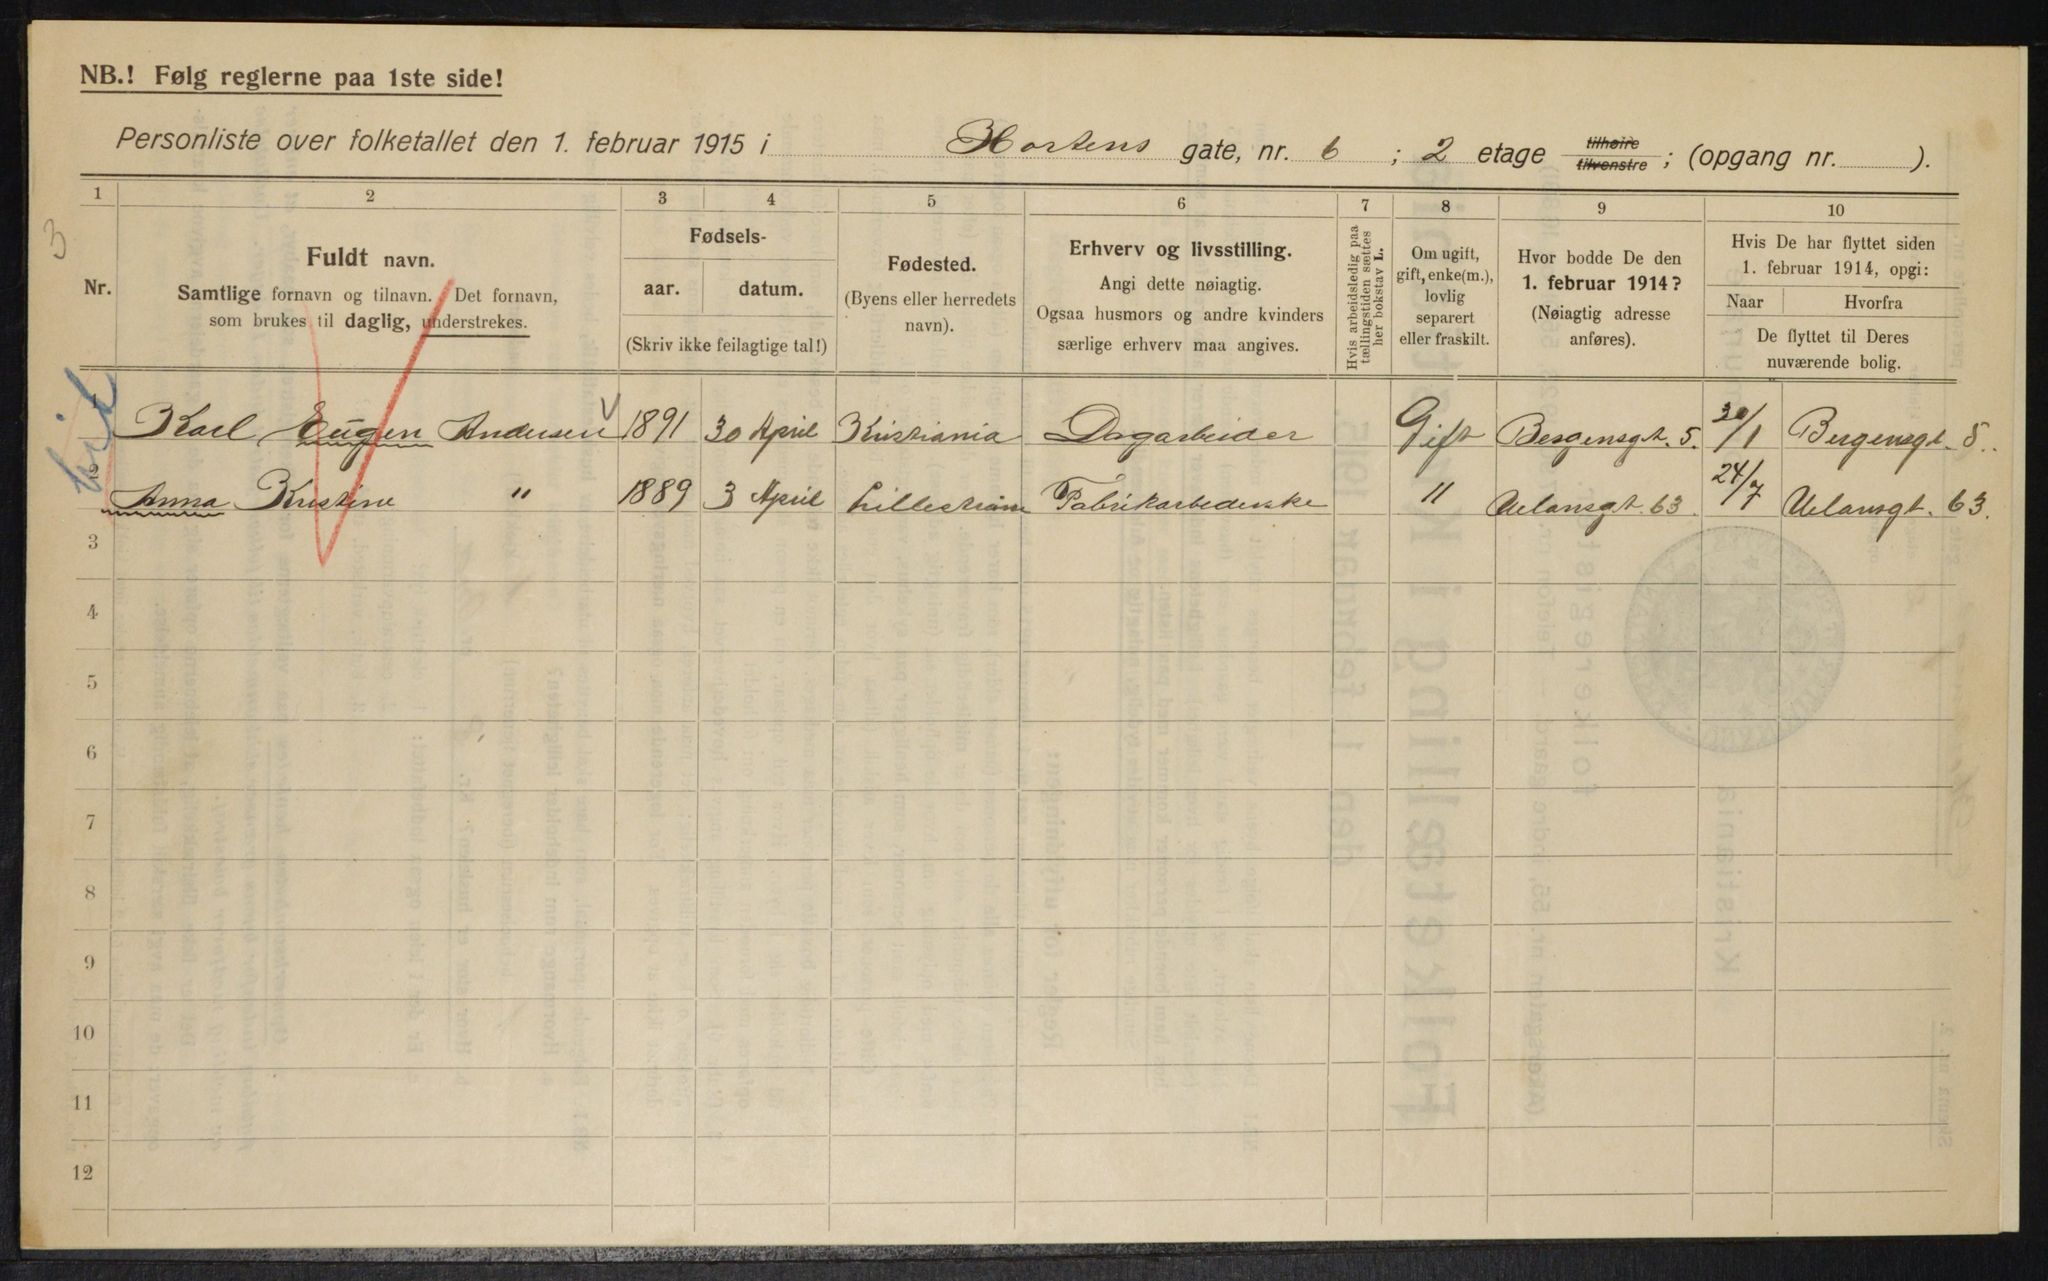 NB.! Følg reglerne paa 1ste side!
Personliste over folketallet den 1. februar 1915 i Hortens gate, nr. 6 ; 2 etage tilhøire tilvenstre ; (opgang nr. ).
1 2 3 4 5 6 7 8 9 10
3
Nr.
Fuldt navn.
Samtlige fornavn og tilnavn. Det fornavn,
som brukes til daglig, understrekes.
Fødsels-
aar. datum.
(Skriv ikke feilagtige tal!)
Fødested.
(Byens eller herredets
navn).
Erhverv og livsstilling.
Angi dette nøiagtig.
Ogsaa husmors og andre kvinders
særlige erhverv maa angives.
Hvis arbeidsledig paa
tællingstiden sættes
her bokstav L.
Om ugift,
gift, enke(m.),
lovlig
separert
eller fraskilt.
Hvor bodde De den
1. februar 1914?
(Nøiagtig adresse
anføres).
Hvis De har flyttet siden
1. februar 1914, opgi:
Naar Hvorfra
De flyttet til Deres
nuværende bolig.
1 Karl Eugen Andersen 1891 30 April Kristiania Dagarbeider Gift Bergensgt. 5. 30/1 Bergensgt. 5.
2 Anna Kristine " 1889 3 April Lillestrøm Fabrikarbederske " Uelansgt. 63. 24/7 Uelansgt. 63.
3
4
5
6
7
8
9
10
11
12